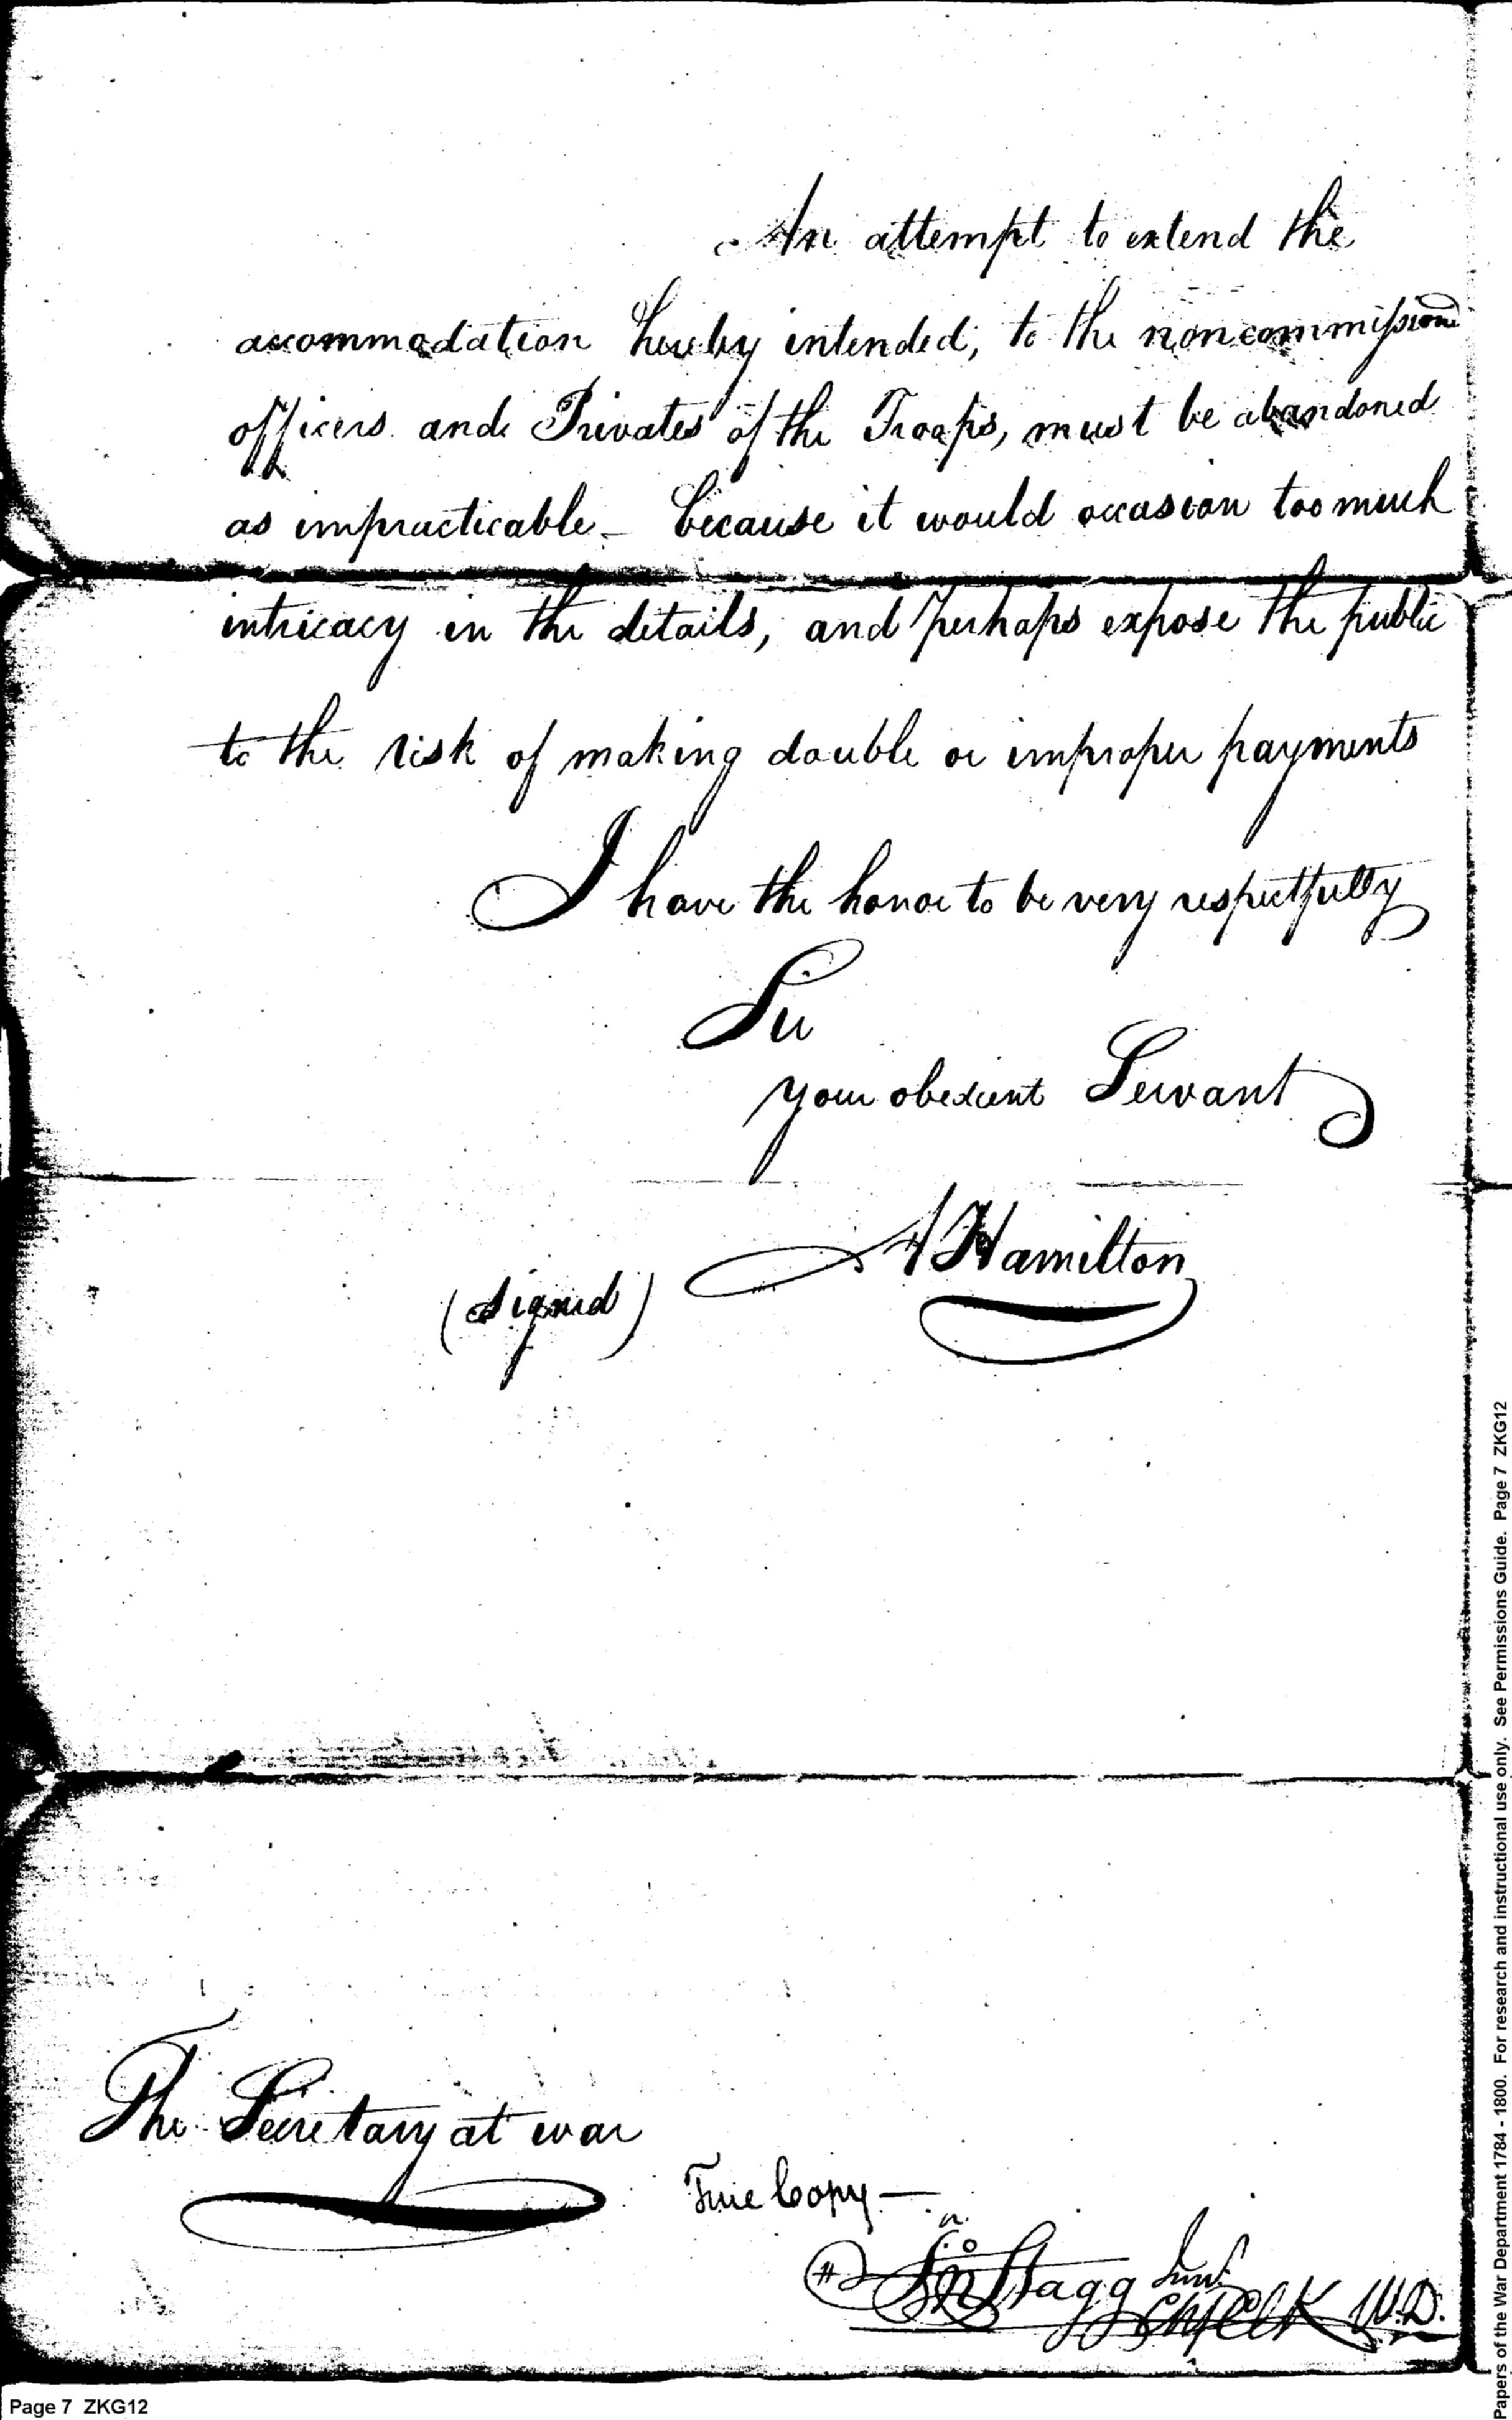 An attempt to extend the
accommodation hereby intended, to the noncommissioned
officers and Privates of the Troops, must be abandoned
as impracticable – because it would occasion too much
intricacy in the details, and perhaps expose the public
to the risk of making double or improper payments
I have the honor to be very respectfully
Sir
your obedient Servant
A Hamilton
(signed)
The Secretary at war
True Copy —
Jno Stagg Junr.
Chf Clk W.D.
Page 7 ZKG12
Papers of the War Department 1784 - 1800. For research and instructional use only. See Permissions Guide. Page 7 ZKG12